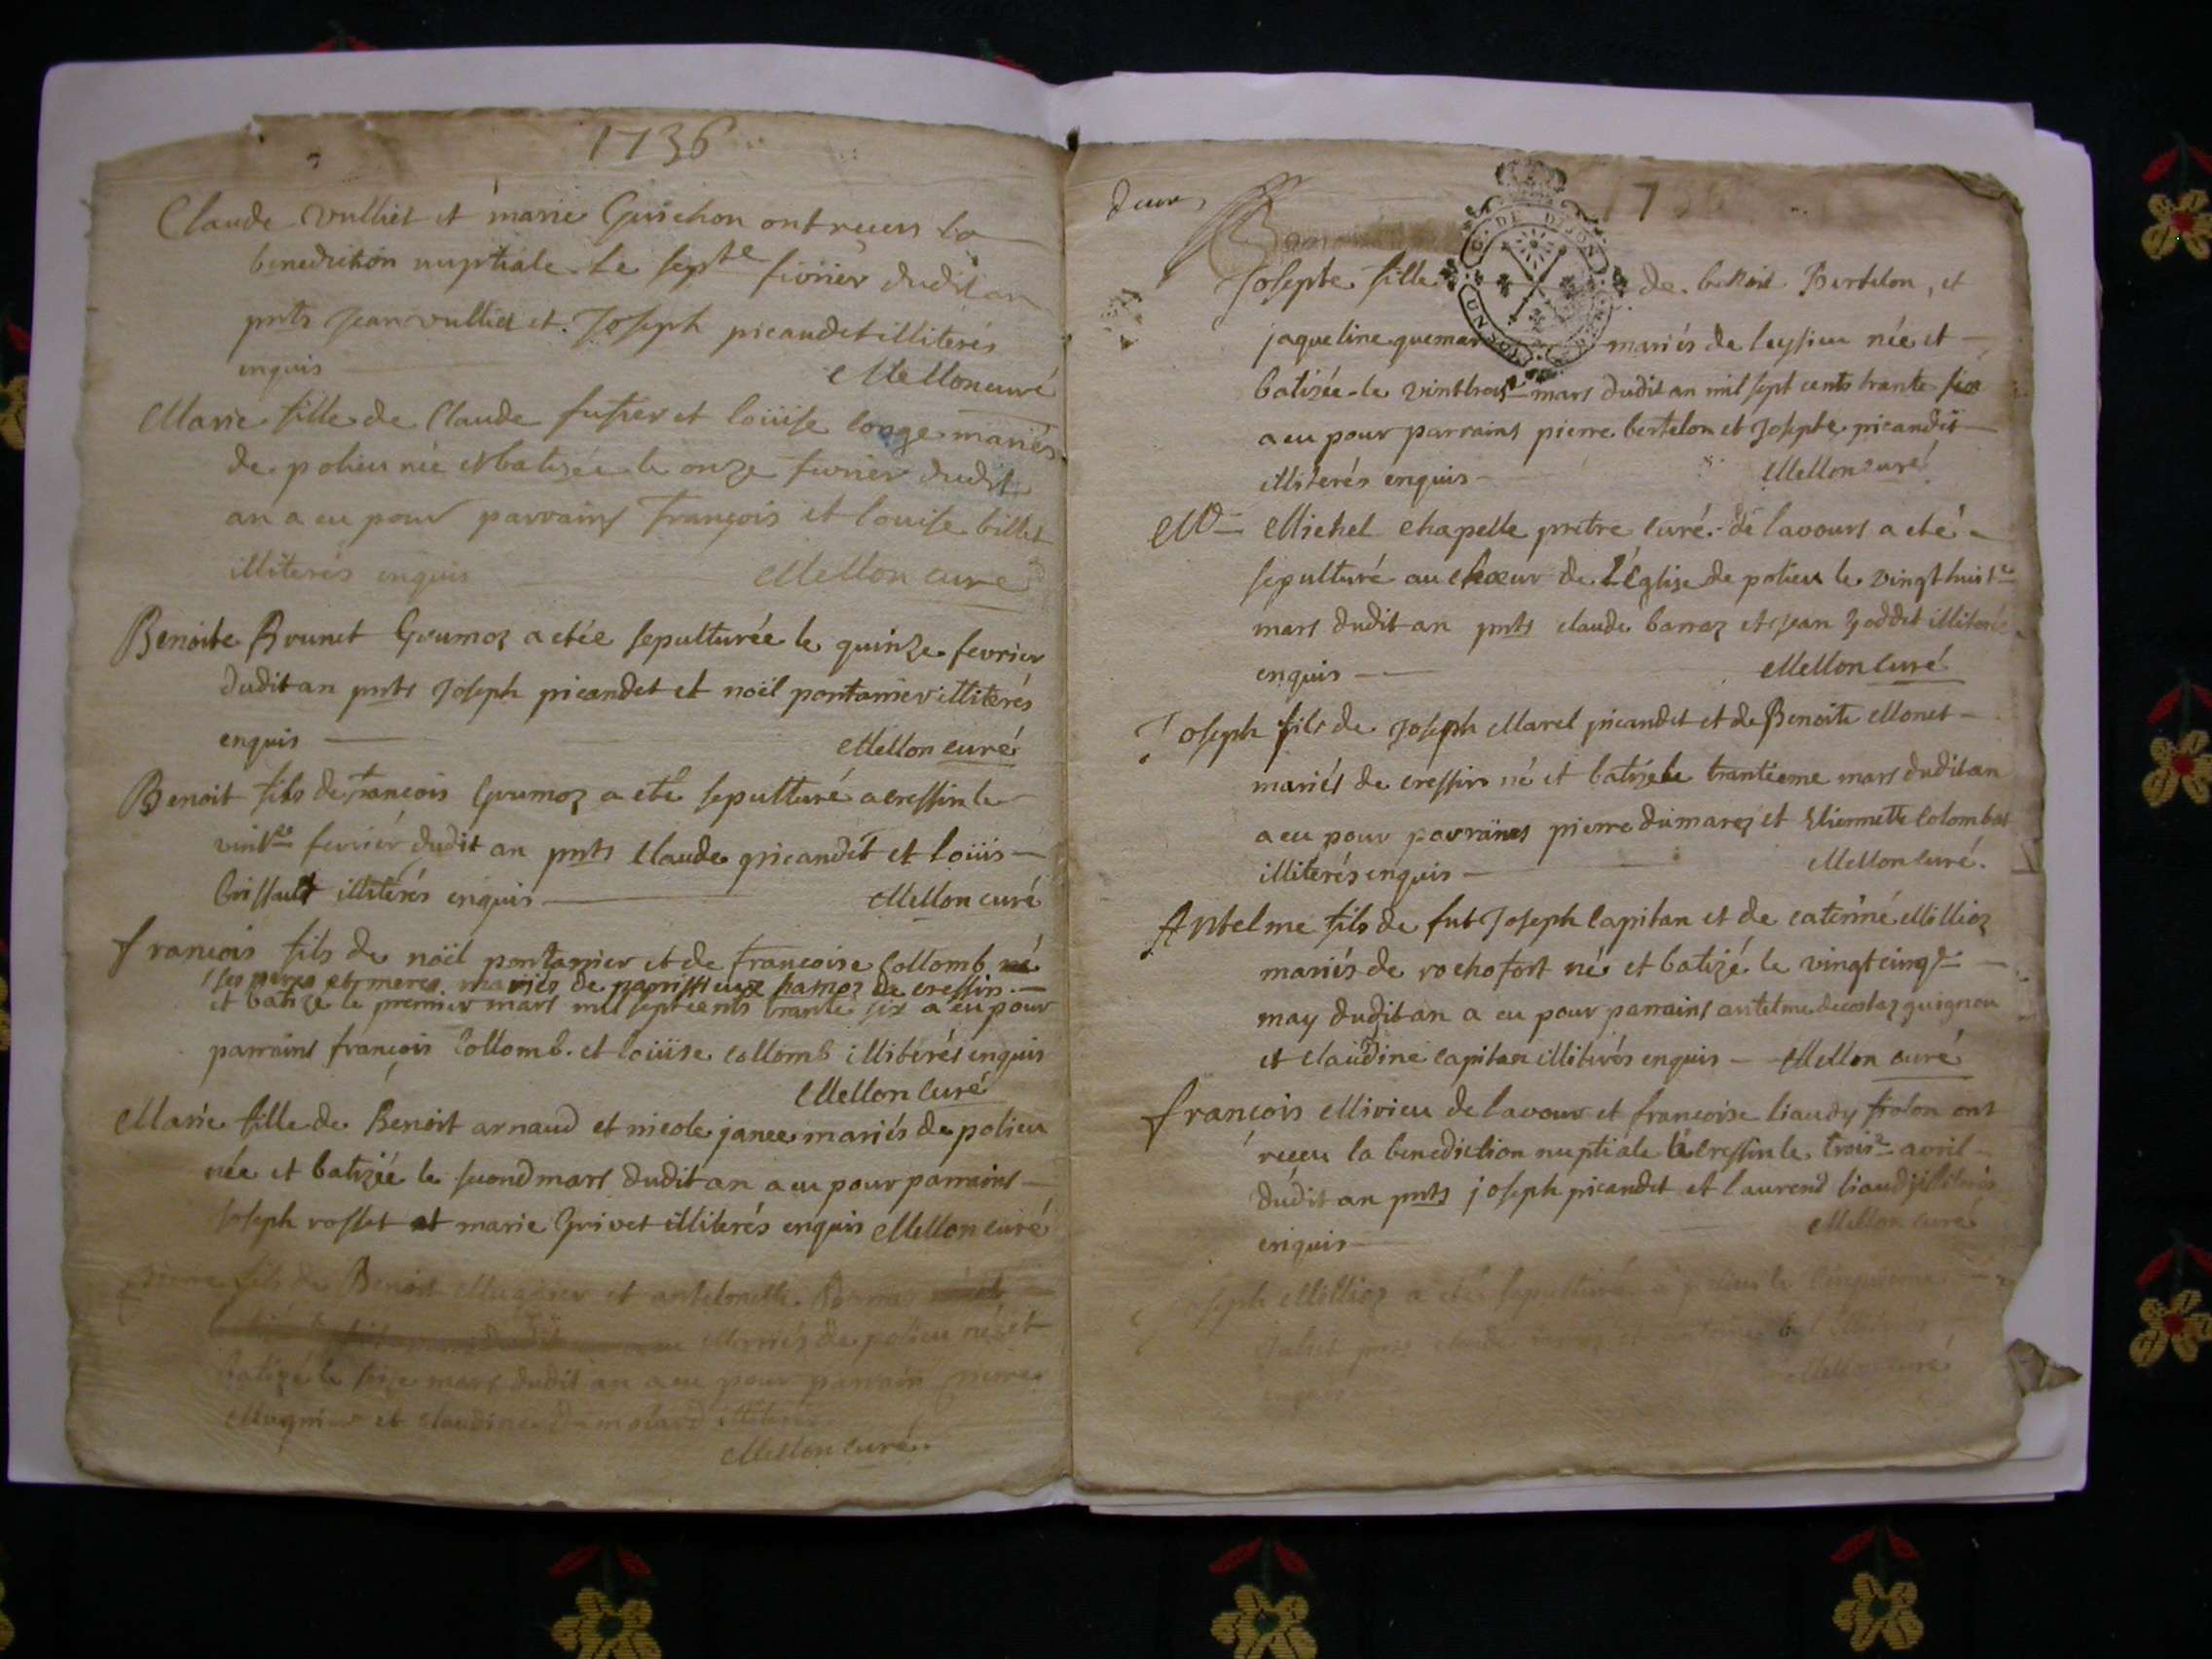 1736
Claude vulliet et marie Guichon ont receu la
benediction nuptiale le septe fevrier dudit an
pnts Jean vulliet et Joseph picandet illiterés
enquis Mellon curé
Marie fille de Claude fusier et loüise longe mariés
de polieu née et batizée le onze fevrier dudit
an a eu pour parrains François et louise billet
illiterés enquis Mellon curé
Benoite Brunet Grumoz a etée sepulturée le quinze fevrier
dudit an pnts Joseph picandet et noël pontanier illiterés
enquis Mellon curé
Benoit fils de francois Grumoz a eté sepulturé a cressin le
fevrier dudit an pnts Claude picandet et loüis
illiterés enquis Mellon curé
francois fils de noël pontanier et de francoise Collomb né
ses peres et meres mariés de hamoz de cressin
et batizé le premier mars mil sept cents trante six a eu pour
parrains françois Collomb et loüise collomb illiterés enquis
Mellon Curé
Marie fille de Benoit arnaud et nicole janee mariés de polieu
née et batizée le second mars dudit an a eu pour parrains
Joseph rosset et marie Grivet illiterés enquis Mellon curé
pierre fils de Benoit Mugnier et antelmette
Mariés de polieu né et
batizé le seize mars dudit an a eu pour parrain pierre
Mugnier et Claudine dumolard
Mellon Curé
deux 17
G. DE DIJON
UN SOL
Josepte fille de benoit Bertelon, et
jaqueline mariés de leyssieu née et
batizée le vinttrois mars dudit an mil sept cents trante six
a eu pour parrains pierre bertelon et Josepte picandet
illiterés enquis Mellon curé
Mr Michel Chapelle pretre Curé de lavours a eté
sepulturé au choeur de L'église de polieu le vingt huite
mars dudit an pnts claude barraz et jean Goddet
enquis Mellon Curé
Joseph fils de Joseph Marel picandet et de Benoite Monet
mariés de cressin né et batizé le trantieme mars dudit an
a eu pour parrains pierre dumarez et Etiennette Colombet
illiterés enquis Mellon Curé.
Antelme fils de fut Joseph Capitan et de caterine Millioz
mariés de rochofort né et batizé le vingt cinqe
may dudit an a eu pour parrains antelme decostaz guignon
et claüdine capitan illiterés enquis Mellon curé
francois Mivieu de lavour et francoise liaudy ont
receu la benediction nuptiale a Cressin le troise avril
dudit an pnts joseph picandet et laurend
enquis Mellon curé
Joseph Millioz a eté sepulturé a polieu le
pnts claude
Mellon curé